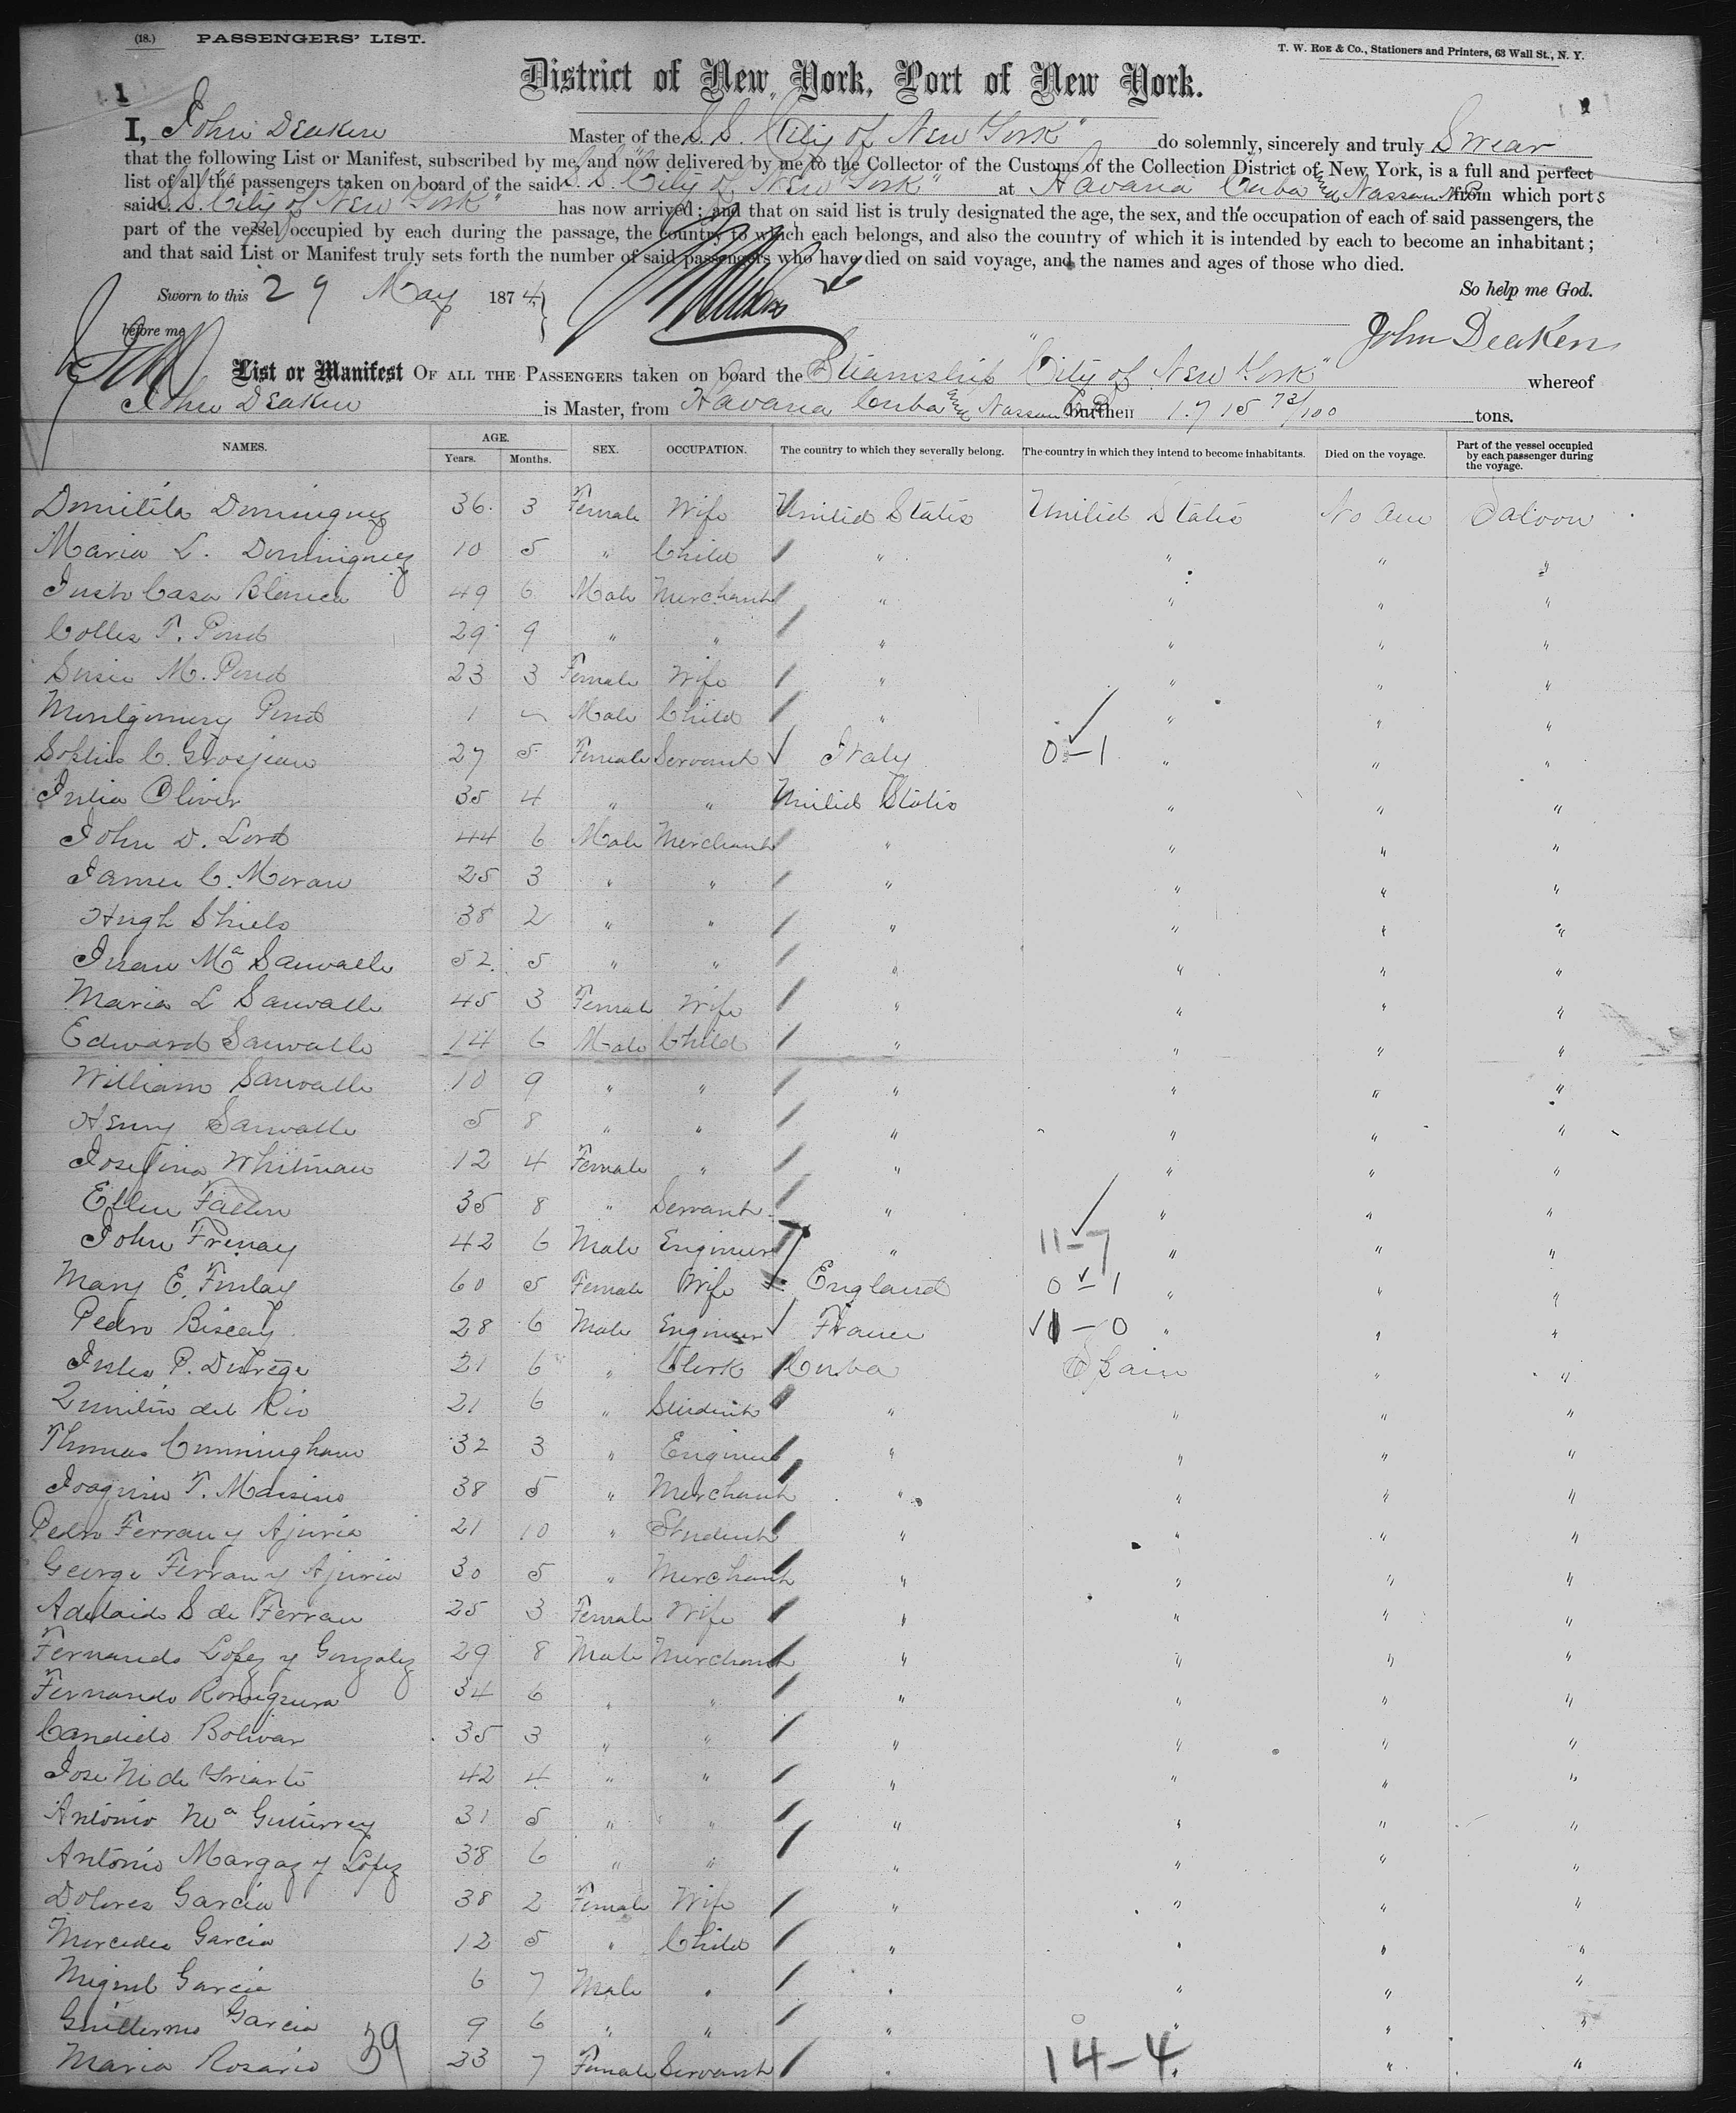 (18.) PASSENGERS' LIST.
T. W. ROE & Co., Stationers and Printers, 63 Wall St., N. Y.
1
District of New York, Port of New York.
I, John Deaken Master of the S.S. "City of New York" do solemnly, sincerely and truly Swear
that the following List or Manifest, subscribed by me, and now delivered by me to the Collector of the Customs of the Collection District of New York, is a full and perfect
list of all the passengers taken on board of the said S.S. "City of New York" at Havana Cuba and Nassau N.P. from which ports
said S.S. "City of New York" has now arrived; and that on said list is truly designated the age, the sex, and the occupation of each of said passengers, the
part of the vessel occupied by each during the passage, the country to which each belongs, and also the country of which it is intended by each to become an inhabitant;
and that said List or Manifest truly sets forth the number of said passengers who have died on said voyage, and the names and ages of those who died.
Sworn to this 29 May 1874 So help me God.
before me John Deaken
List or Manifest OF ALL THE PASSENGERS taken on board the Steamship "City of New York" whereof
John Deaken is Master, from Havana Cuba and Nassau N.P. burthen 1715 73/100 tons.
NAMES. AGE. Years. Months. SEX. OCCUPATION. The country to which they severally belong. The country in which they intend to become inhabitants. Died on the voyage. Part of the vessel occupied by each passenger during the voyage.
Domitila Dominguez 36 3 Female Wife United States United States No One Saloon
Maria L. Dominguez 10 5 " Child " " " "
Justo Casa Blanca 49 6 Male Merchant " " " "
Colles T. Pond 29 9 " " " " " "
Susie M. Pond 23 3 Female Wife " " " "
Montgomery Pond 1 Male Child " " " "
Sophie C. Grosjean 27 5 Female Servant Italy 0-1 " " "
Julia Oliver 35 4 " " United States " " "
John D. Lord 44 6 Male Merchant " " " "
James C. Moran 25 3 " " " " " "
Hugh Shiels 38 2 " " " " " "
Juan Ma Sauvalle 52 5 " " " " " "
Maria L Sauvalle 45 3 Female Wife " " " "
Edward Sauvalle 14 6 Male Child " " " "
William Sauvalle 10 9 " " " " " "
Henry Sauvalle 5 8 " " " " " "
Josefina Whitman 12 4 Female " " " " "
Ellen Fallon 35 8 " Servant " " " "
John Frenay 42 6 Male Engineer " 11-7 " " "
Mary E. Finlay 60 5 Female Wife England 0-1 " " "
Pedro Biscay 28 6 Male Engineer France 1-0 " " "
Jules P. Dutrége 21 6 " Clerk Cuba Spain " "
Quintin del Rio 21 6 " Student " " " "
Thomas Cunningham 32 3 " Engineer " " " "
Joaquin T. 38 5 " Merchant " " " "
Pedro Ferran y Ajuria 21 10 " Student " " " "
George Ferran y Ajuria 30 5 " Merchant " " " "
Adelaida S de Ferran 25 3 Female Wife " " " "
Fernando Lopez y Gonzalez 29 8 Male Merchant " " " "
Fernando Romaguera 34 6 " " " " " "
Candido Bolivar 35 3 " " " " " "
Jose de Yriarte 42 4 " " " " " "
Antonio Ma Gutierrez 31 5 " " " " " "
Antonio Margaz y Lopez 38 6 " " " " " "
Dolores Garcia 38 2 Female Wife " " " "
Mercedes Garcia 12 5 " Child " " " "
Miguel Garcia 6 7 Male " " " " "
Guillermo Garcia 9 6 " " " " " "
Maria Rosario 39 33 7 Female Servant " 14-4 " " "